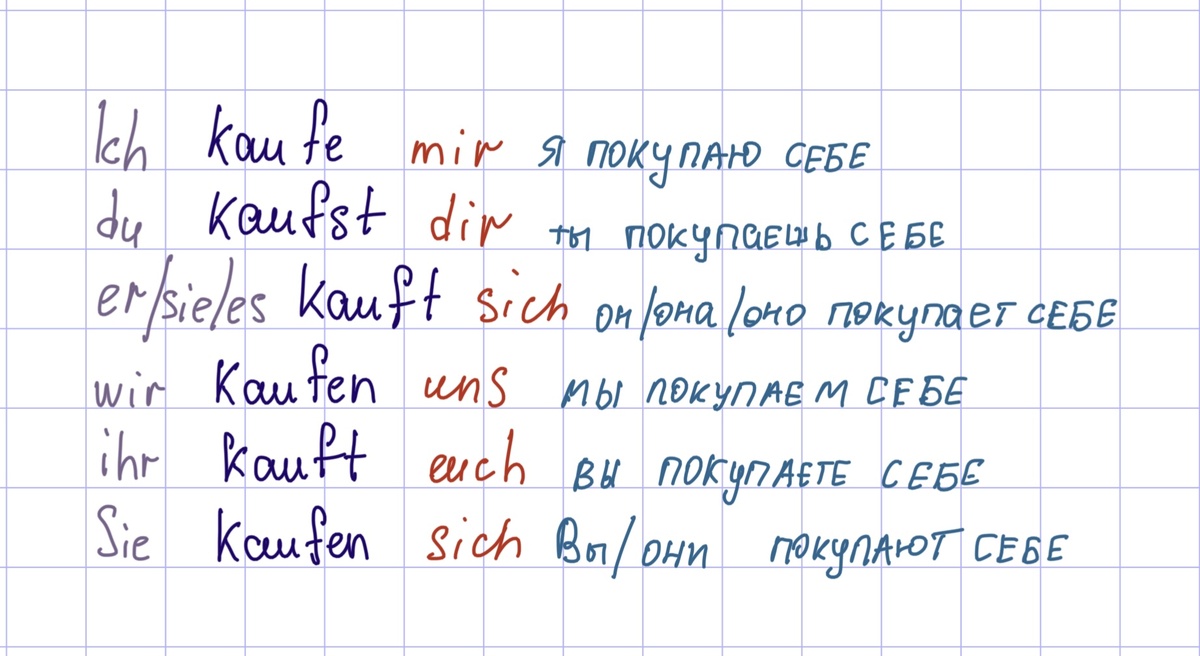 Ich kaufe mir я покупаю себе
du kaufst dir ты покупаешь себе
er/sie/es kauft sich он/она/оно покупает себе
wir kaufen uns мы покупаем себе
ihr kauft euch вы покупаете себе
Sie kaufen sich Вы/они покупают себе